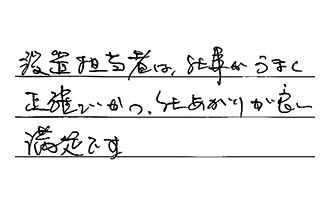 設置担当者は、仕事がうまく
正確でかつ、仕あがりが良い
満足です